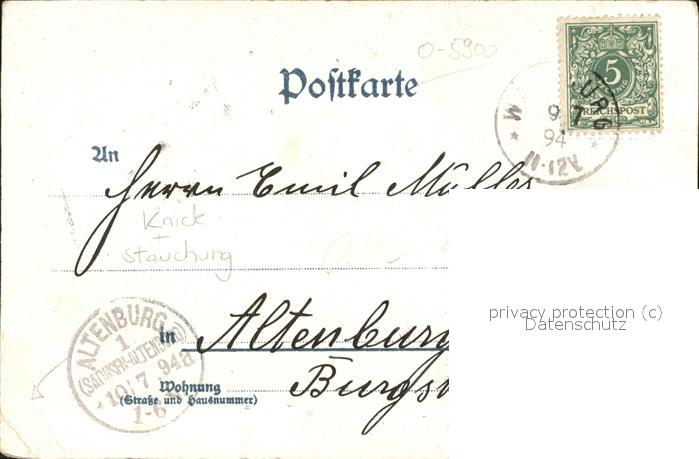 O-5900
Postkarte
5
REICHSPOST
URG
9 7
94
M
11-12V
An
Herrn Emil Müller
Knick
+
Stauchung
privacy protection (c)
Datenschutz
in Altenburg
ALTENBURG
1
(SACHSEN-ALTENBURG)
10 7 94
1-6
Wohnung
(Straße und Hausnummer)